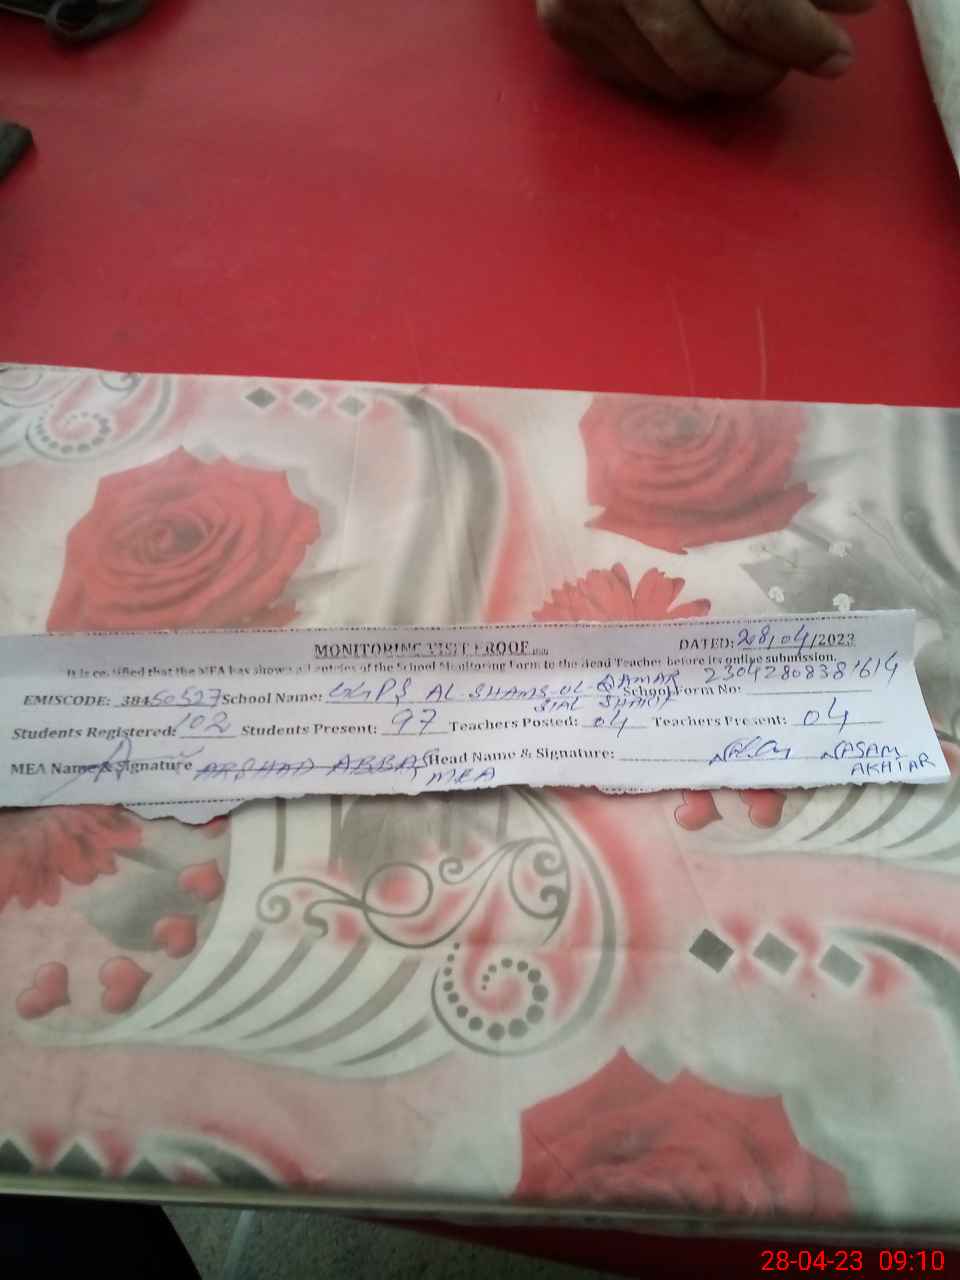 MONITORING VISIT PROOF DATED: 28/04/2023
It is certified that the MEA has shown all entries of the School Monitoring Form to the Head Teacher before its online submission.
EMISCODE: 38450527 School Name: GGPS AL-SHAMS-UL-QAMAR SIAL SHARIF School Form No: 23042808381614
Students Registered: 102 Students Present: 97 Teachers Posted: 04 Teachers Present: 04
MEA Name & Signature ARSHAD ABBAS MEA Head Name & Signature: AKHTAR
28-04-23 09:10